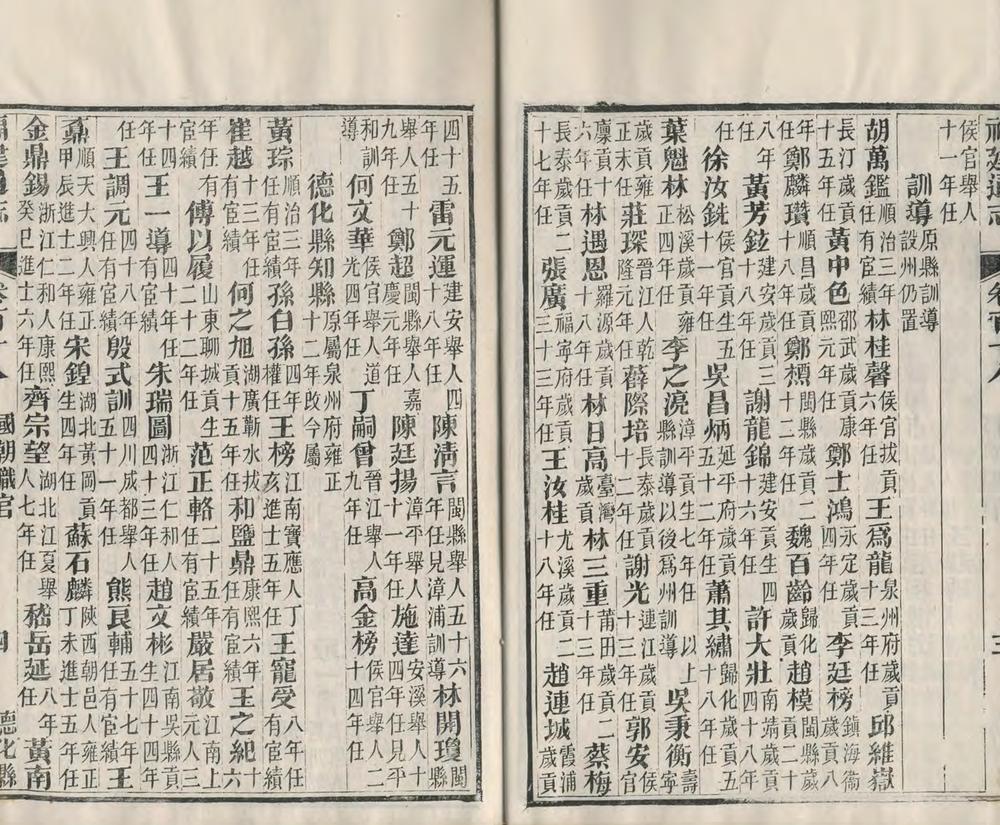 侯官舉人十一年任
訓導原縣訓導設州仍置
胡萬鑑順治三年任有宦績林桂馨侯官拔貢六年任王爲龍泉州府歲貢十三年任邱維嶽
長汀歲貢十五年任黃中色邵武歲貢康熙元年任鄭士鴻永定歲貢四年任李廷榜鎮海衞歲貢八
年任鄭麟瓚順昌歲貢十八年任鄭標閩縣歲貢二十二年任魏百齡歸化歲貢任趙模閩縣歲貢二十
八年任黃芳鉉建安歲貢三十八年任謝龍錦建安貢生四十六年任許大壯南靖歲貢四十八年
任徐汝銑侯官貢生五十一年任吳昌炳延平府歲貢五十二年任蕭其繡歸化歲貢五十八年任
葉魁林松溪歲貢雍正四年任李之澆漳平貢生七年任以上縣訓導以後爲州訓導吳秉衡壽寧
歲貢雍正末任莊琛晉江人乾隆元年任薛際培長泰歲貢十二年任謝光連江歲貢十三年任郭安侯官
廩貢十六年任林遇恩羅源歲貢十八年任林日高臺灣歲貢任林三重莆田歲貢二十三年任蔡梅
長泰歲貢二十七年任張廣福寧府歲貢三十三年任王汝桂尤溪歲貢三十八年任趙連城霞浦歲貢
四十五年任雷元運建安舉人四十八年任陳淸言閩縣舉人五十六年任見漳浦訓導林開瓊閩縣
舉人五十九年任鄭超閩縣舉人嘉慶元年任陳廷揚漳平舉人十一年任施達安溪舉人十四年任見平
和訓導何文華侯官舉人道光四年任丁嗣曾晉江舉人九年任高金榜侯官舉人二十四年任
德化縣知縣原屬泉州府雍正十二年改今屬
黃琮順治三年任有宦績孫白孫四年權任王榜江南寶應人丁亥進士五年任王寵受八年任有宦績
崔越十三年任有宦績何之旭湖廣蘄水拔貢十五年任和鹽鼎康熙六年任有宦績王之紀十六
年任有宦績傅以履山東聊城貢生二十二年任范正輅二十五年任有宦績嚴居敬江南上元人三
十四年任王一導四十年任有宦績朱瑞圖浙江仁和人四十三年任趙文彬江南吳縣貢生四十四年
任王調元四十八年任有宦績殷式訓四川成都舉人五十一年任熊良輔五十七年任有宦績王
鼐順天大興人雍正甲辰進士二年任宋鍠湖北黃岡貢生四年任蘇石麟陝西朝邑人雍正丁未進士五年任
金鼎錫浙江仁和人康熙癸巳進士六年任齊宗望湖北江夏舉人七年任嵇岳延八年任黃南
國朝職官 四 德化縣